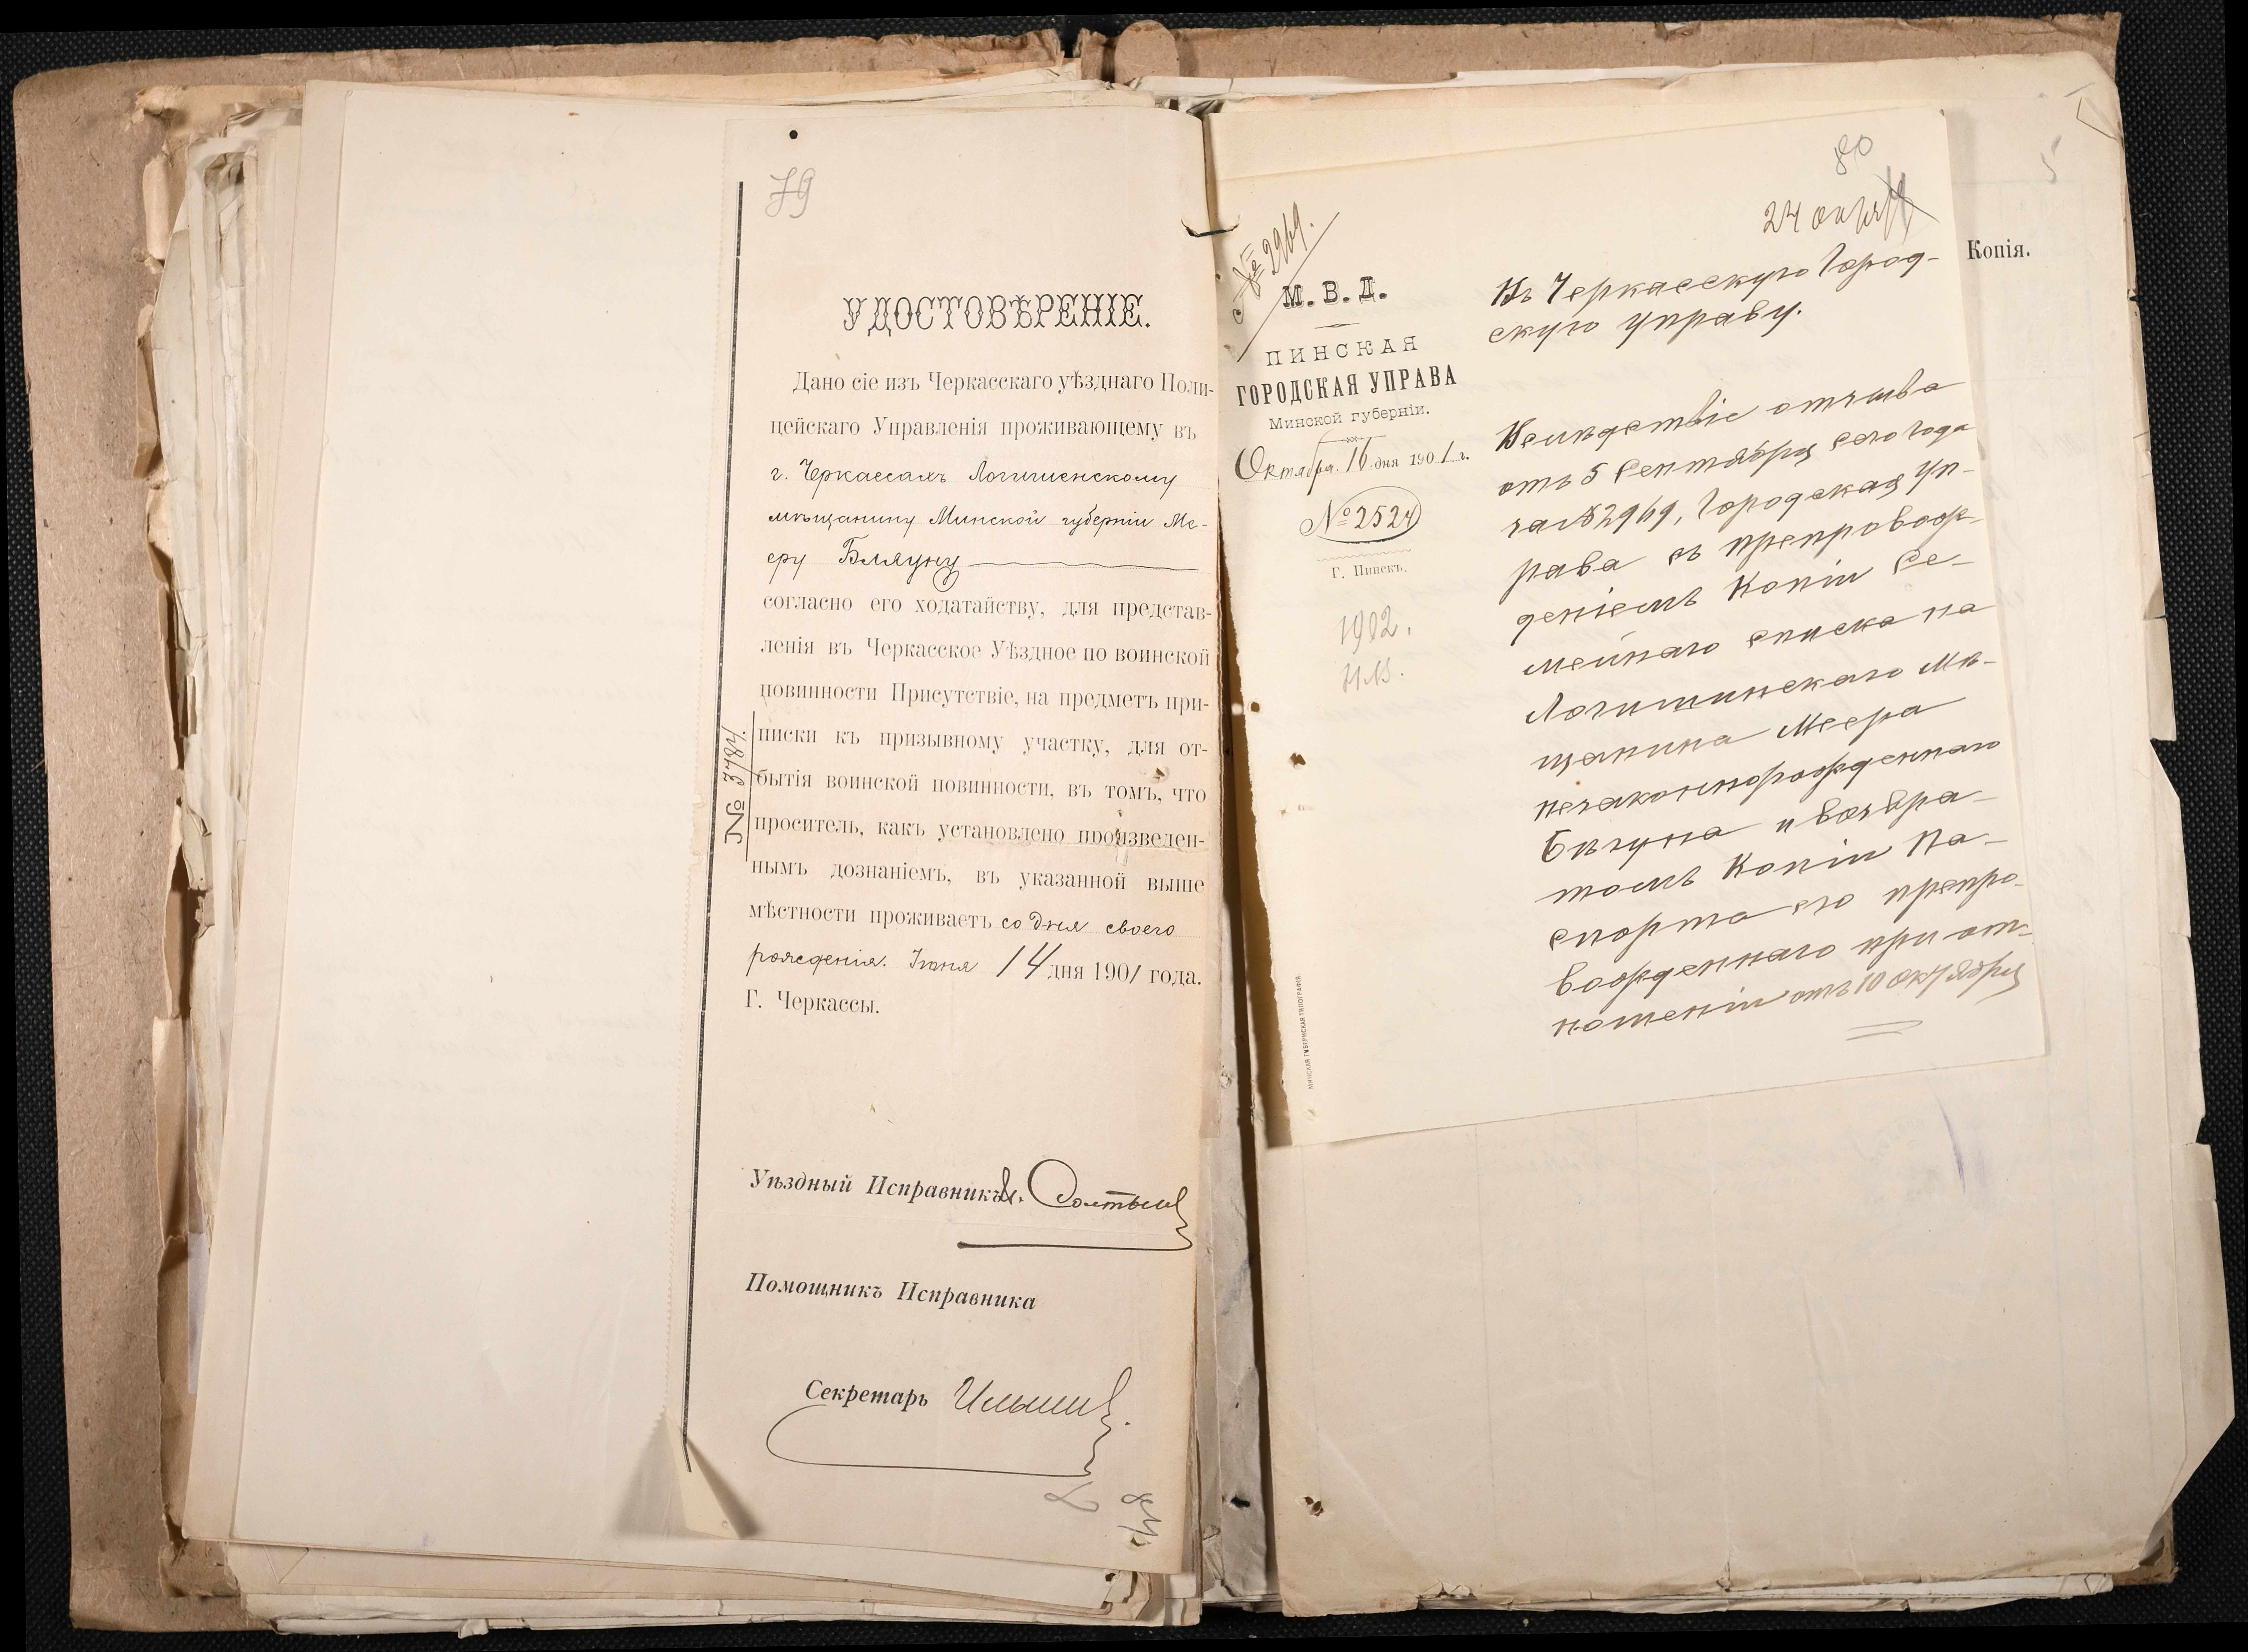 79
УДОСТОВѢРЕНІЕ.
Дано сіе изъ Черкасскаго уѣзднаго Поли-
цейскаго Управленія проживающему въ
г. Черкассахъ Логишенскому
мѣщанину Минской губерніи Ме-
еру
согласно его ходатайству, для представ-
ленія въ Черкасское Уѣздное по воинской
повинности Присутствіе, на предметъ при-
писки къ призывному участку, для от-
бытія воинской повинности, въ томъ, что
проситель, какъ установлено произведен-
нымъ дознаніемъ, въ указанной выше
мѣстности проживаетъ со дня своего
рожденія. Іюня 14 дня 1901 года.
Г. Черкассы.
№ 3484.
Уѣздный Исправникъ
Помощникъ Исправника
Секретарь
80
24
№ 2969.
М. В. Д.
ПИНСКАЯ
ГОРОДСКАЯ УПРАВА
Минской губерніи.
Октября 16 дня 1901 г.
№ 2524
Г. Пинскъ.
1902.
МИНСКАЯ ГУБЕРНСКАЯ ТИПОГРАФІЯ.
Въ Черкасскую Город-
скую Управу.
Вслѣдствіе отзыва
отъ 5 Сентября сего года
за №2969, Городская Уп-
рава съ препровож-
деніемъ копіи се-
мейнаго списка на
Логишинскаго мѣ-
щанина Меера
незаконнорожденнаго
Бѣгуна и возвра-
томъ копіи па-
спорта его препро-
вожденнаго при от-
ношеніи отъ 10 Октября
Копія.
5